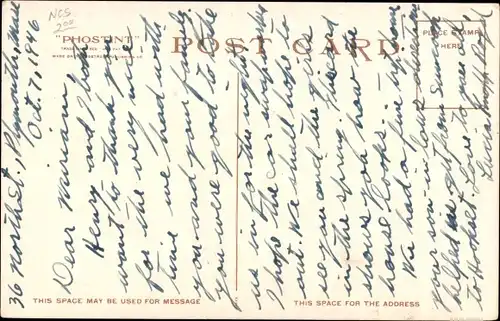 NCS
200
"PHOSTINT"
POST CARD
PLACE STAMP
HERE
THIS SPACE MAY BE USED FOR MESSAGE
THIS SPACE FOR THE ADDRESS
36 North St., Plymouth, Mass
Oct. 7, 1946
Dear Miriam
Henry and I both
want to thank you
for the very nice
time we had with
you and your family.
You were good to take
us in for the night.
I hope the car swap turned
out. We shall hope to
see you and the girls
in the spring. This card
shows you how the
house looks in front.
We had a fine trip home
your son-in-law's directions
helped me get from Suncook
to Hooksett. Love to you all
Lucia